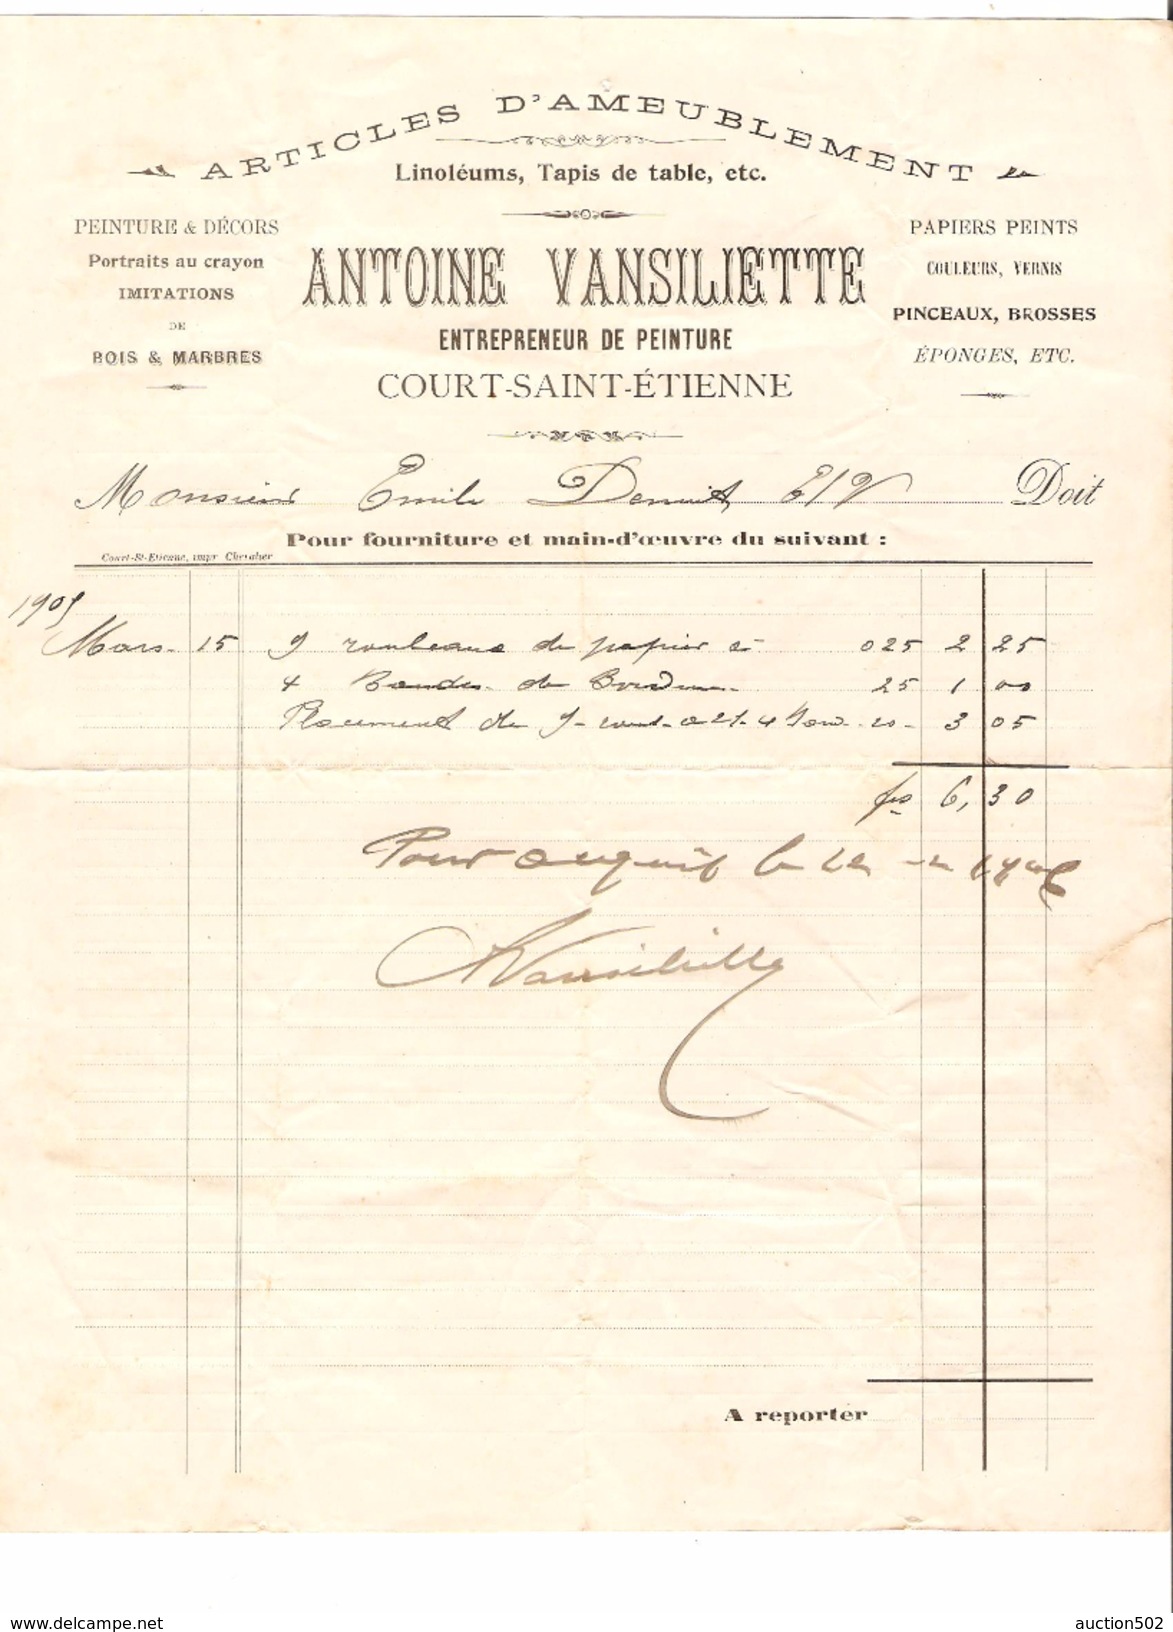 ARTICLES D'AMEUBLEMENT
Linoléums, Tapis de table, etc.
PEINTURE & DÉCORS
Portraits au crayon
IMITATIONS
DE
BOIS & MARBRES
ANTOINE VANSILIETTE
ENTREPRENEUR DE PEINTURE
COURT-SAINT-ÉTIENNE
PAPIERS PEINTS
COULEURS, VERNIS
PINCEAUX, BROSSES
ÉPONGES, ETC.
Monsieur Emile E/V Doit
Pour fourniture et main-d'œuvre du suivant :
Court-St-Etienne, impr Chevalier
1905
Mars 15 9 rouleaux de papier à 025 2 25
4 Bandes de 25 1 00
Placement de 9 4 20 3 05
frs 6,30
Pour acquit le
AVansiliette
A reporter
delcampe.net
auction502